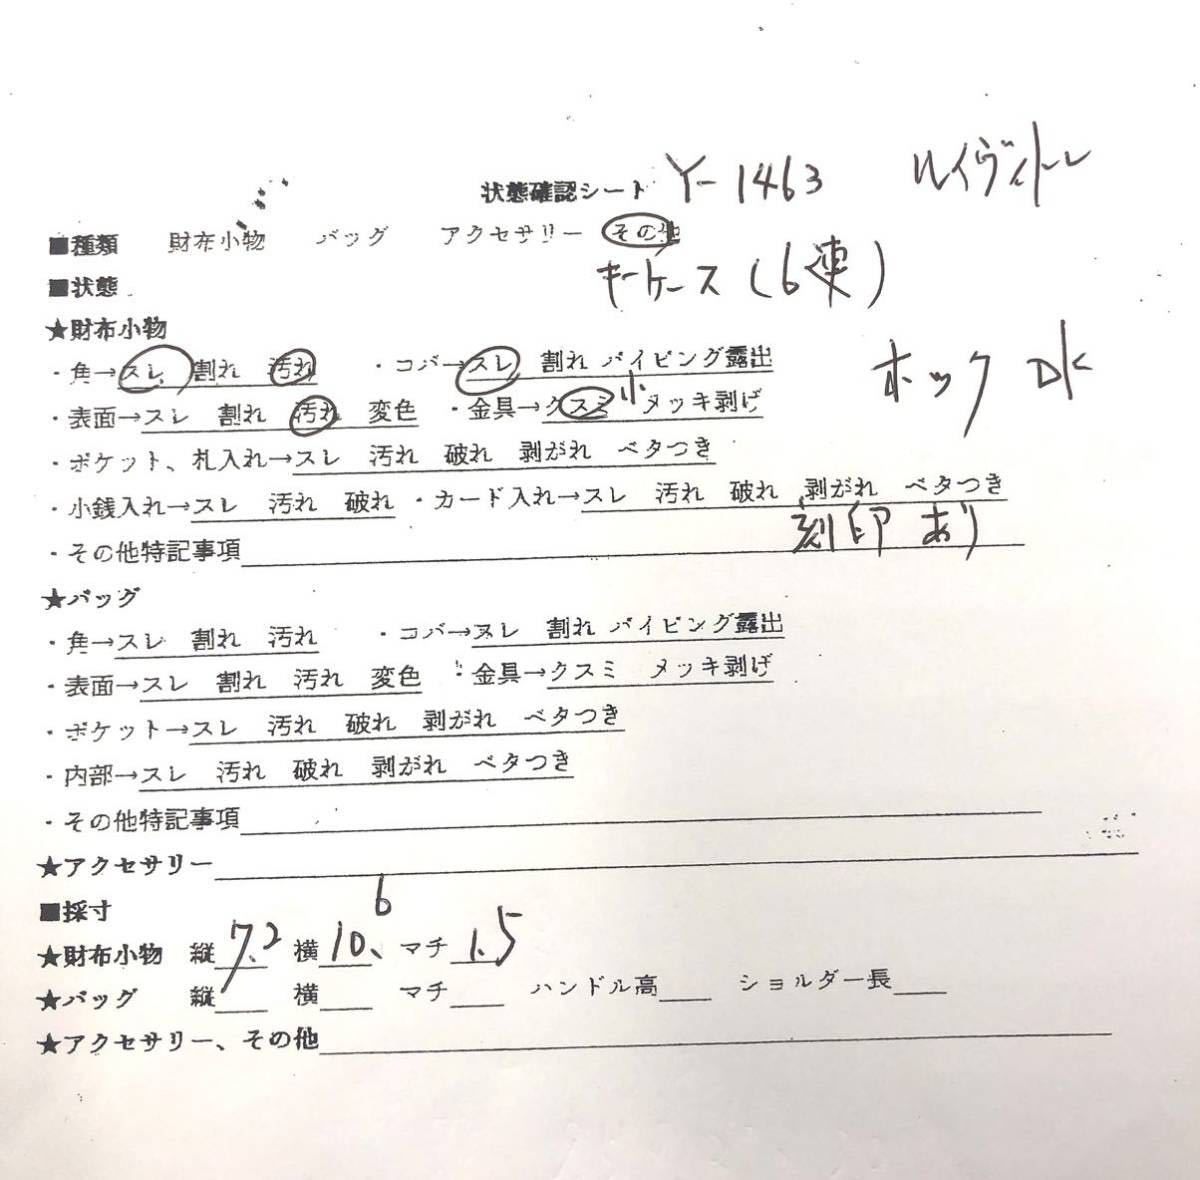 状態確認シート Y-1463 ルイヴィトン
■種類 財布小物 バッグ アクセサリー その他
キーケース(6連)
■状態
★財布小物
・角→スレ 割れ 汚れ ・コバ→スレ 割れ パイピング露出
ホック OK
・表面→スレ 割れ 汚れ 変色 ・金具→クスミ 小 メッキ剥げ
・ポケット、札入れ→スレ 汚れ 破れ 剥がれ ベタつき
・小銭入れ→スレ 汚れ 破れ ・カード入れ→スレ 汚れ 破れ 剥がれ ベタつき
・その他特記事項 刻印あり
★バッグ
・角→スレ 割れ 汚れ ・コバ→スレ 割れ パイピング露出
・表面→スレ 割れ 汚れ 変色 ・金具→クスミ メッキ剥げ
・ポケット→スレ 汚れ 破れ 剥がれ ベタつき
・内部→スレ 汚れ 破れ 剥がれ ベタつき
・その他特記事項
★アクセサリー
■採寸
★財布小物 縦 7.2 横 10.6 マチ 1.5
★バッグ 縦 横 マチ ハンドル高 ショルダー長
★アクセサリー、その他